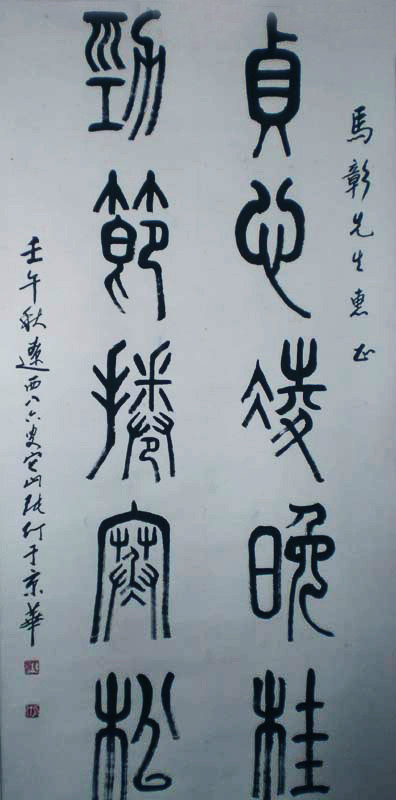 馬彰先生惠正
貞心凌晚桂
勁節捲寒松
壬午秋遼西八六叟它山張仃于京華